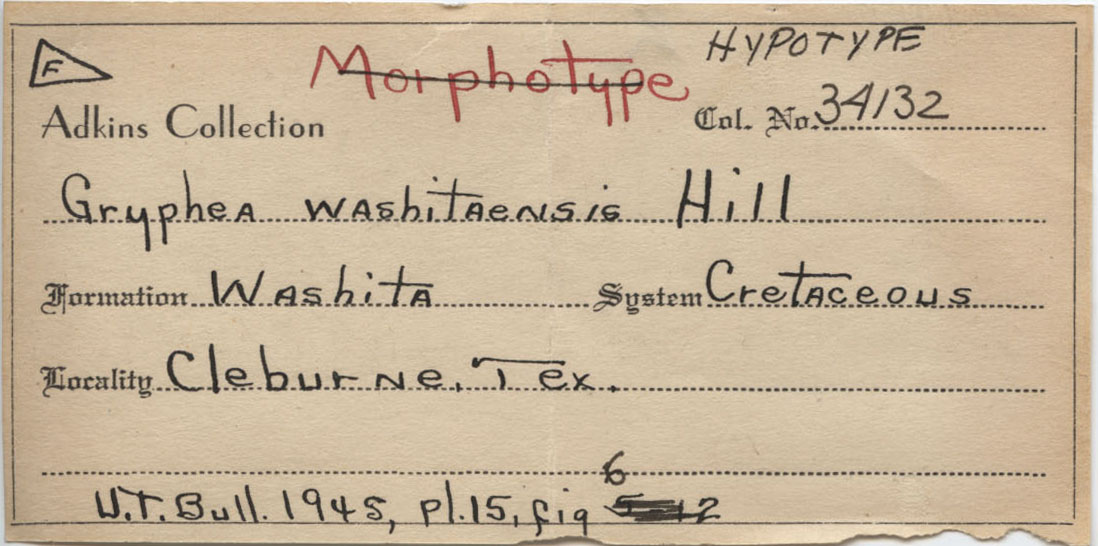 HYPOTYPE
F Morphotype
Adkins Collection Col. No. 34132
Gryphea washitaensis Hill
Formation Washita System Cretaceous
Locality Cleburne, Tex.
6
U.T. Bull. 1945, pl. 15, fig 5-12